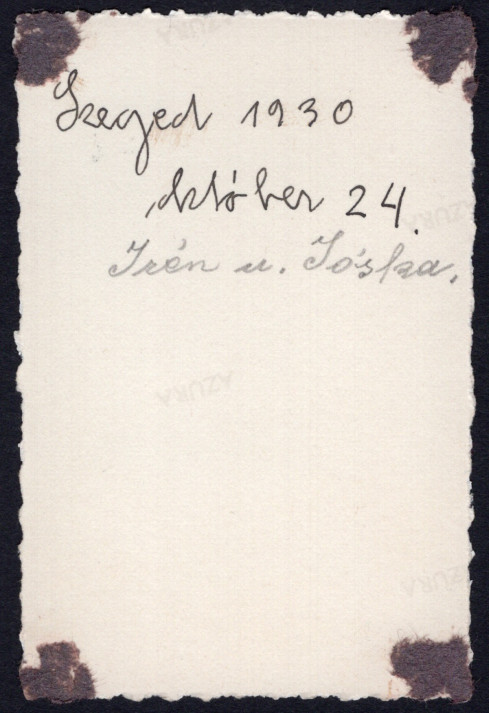 Szeged 1930
október 24.
Irén u. Jóska.
AZURA
AZURA
AZURA
AZURA